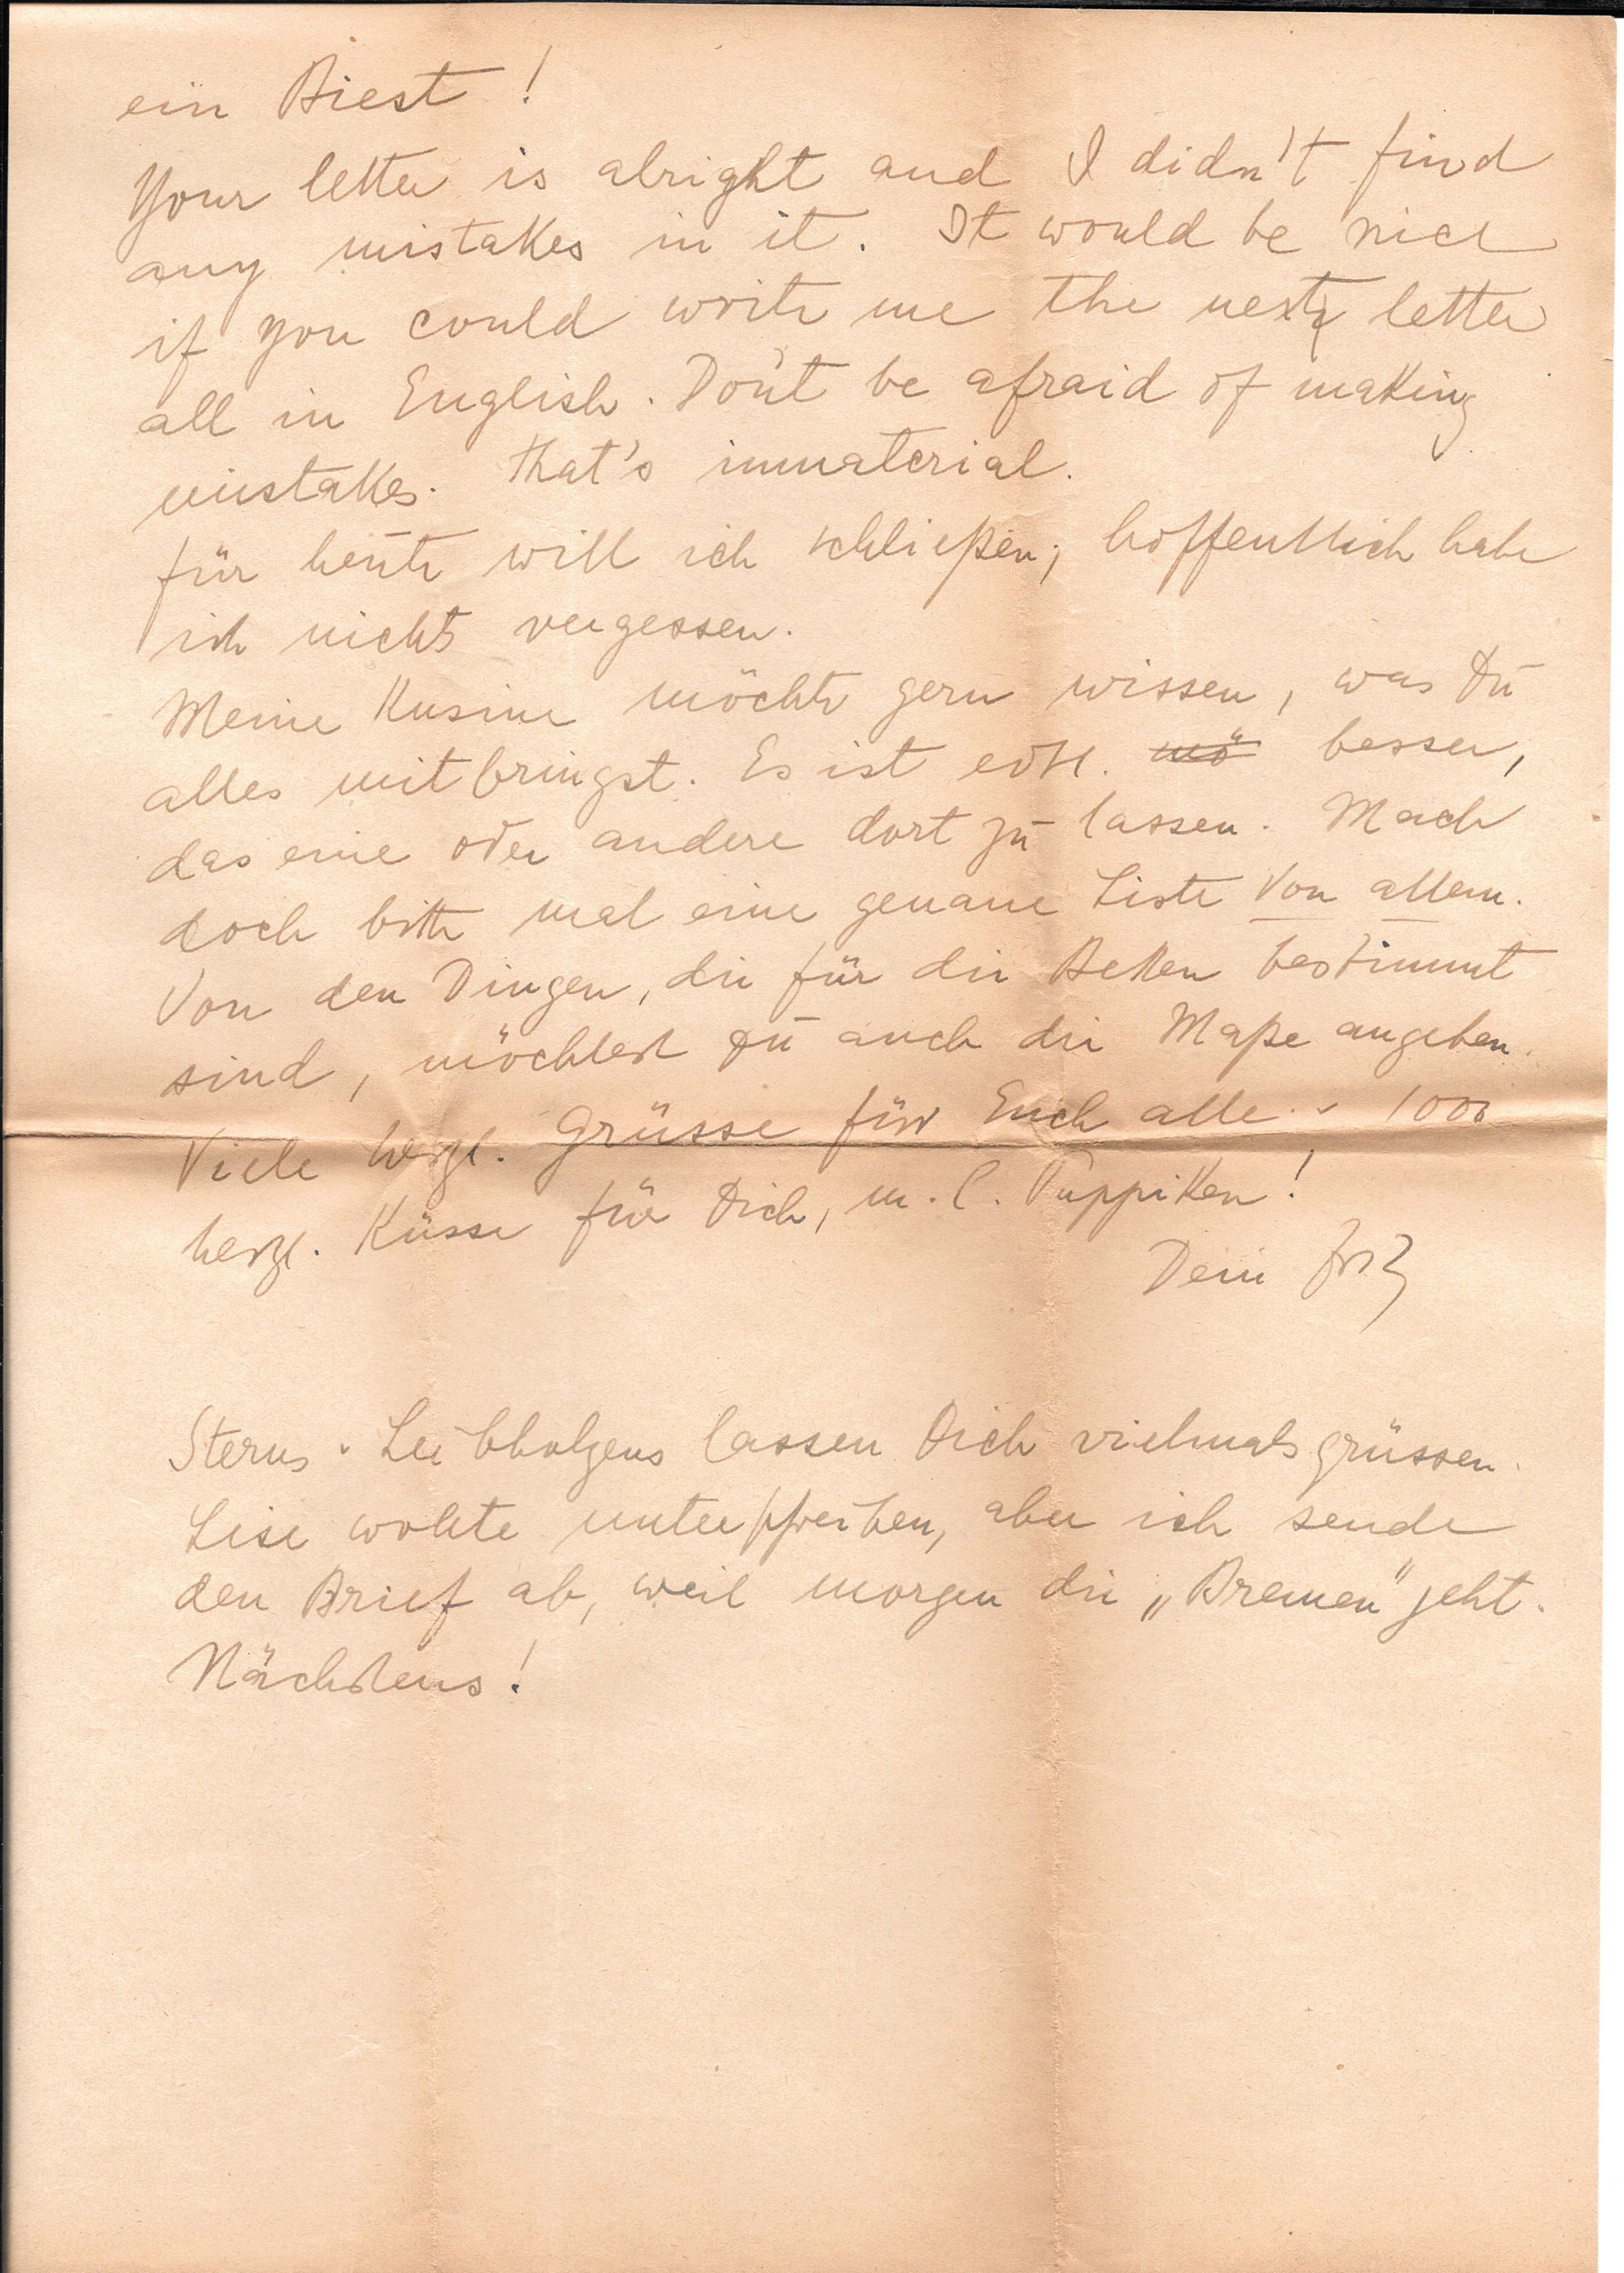 ein Biest!
Your letter is alright and I didn't find
any mistakes in it. It would be nice
if you could write me the next letter
all in English. Don't be afraid of making
mistakes. That's immaterial.
Für heute will ich schließen; hoffentlich habe
ich nichts vergessen.
Meine Kusine möchte gern wissen, was Du
alles mitbringst. Es ist evtl. mö besser,
das eine oder andere dort zu lassen. Mach
doch bitte mal eine genaue Liste von allem.
Von den Dingen, die für die Betten bestimmt
sind, möchtest Du auch die Maße angeben.
Viele herzl. Grüsse für Euch alle. 1000
herzl. Küsse für Dich, m. l. Puppiken!
Dein
Sterns lassen Dich vielmals grüssen.
Lise wollte unterschreiben, aber ich sende
den Brief ab, weil morgen die „Bremen" geht.
Nächstens!